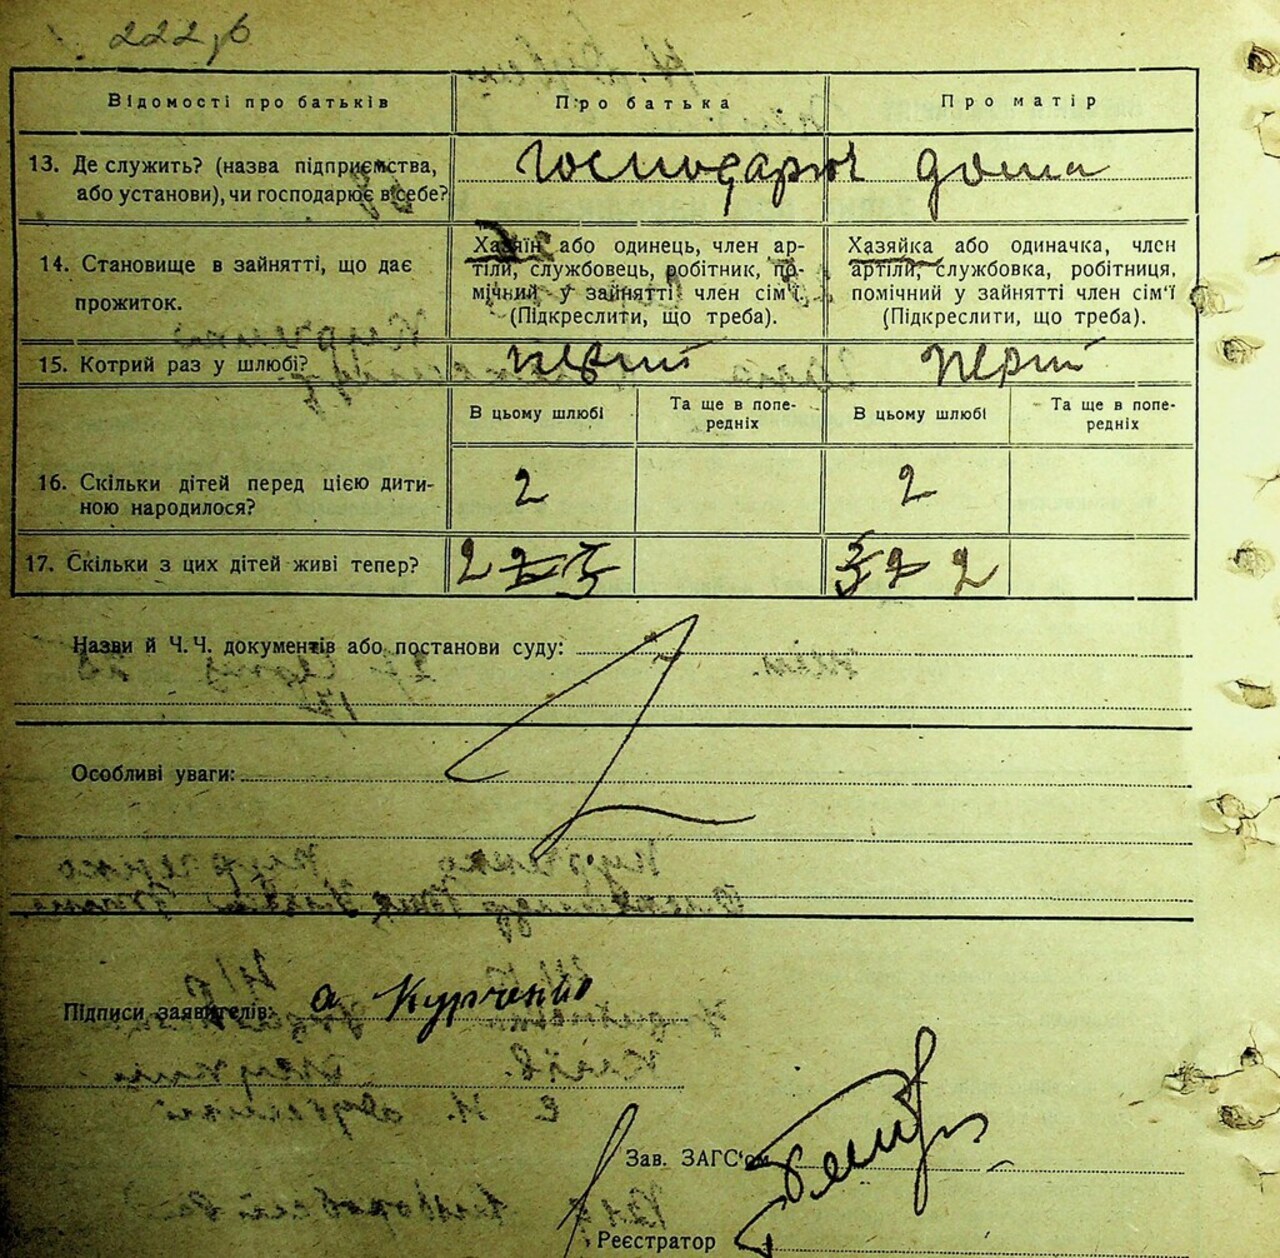 222,б
Відомості про батьків
Про батька
Про матір
13. Де служить? (назва підприємства,
або установи), чи господарює в себе?
Господарює дома
14. Становище в зайнятті, що дає
прожиток.
Хазяїн або одинець, член ар-
тіли, службовець, робітник, по-
мічний у зайнятті член сім'ї.
(Підкреслити, що треба).
Хазяйка або одиначка, член
артіли, службовка, робітниця,
помічний у зайнятті член сім'ї
(Підкреслити, що треба).
15. Котрий раз у шлюбі?
перший
перший
В цьому шлюбі
Та ще в попе-
редніх
В цьому шлюбі
Та ще в попе-
редніх
16. Скільки дітей перед цією дити-
ною народилося?
2
2
17. Скільки з цих дітей живі тепер?
2 2 3
3 2 2
Назви й Ч.Ч. документів або постанови суду:
Особливі уваги:
Підписи заявителів: а Курченко
Зав. ЗАГС'ом
Реєстратор